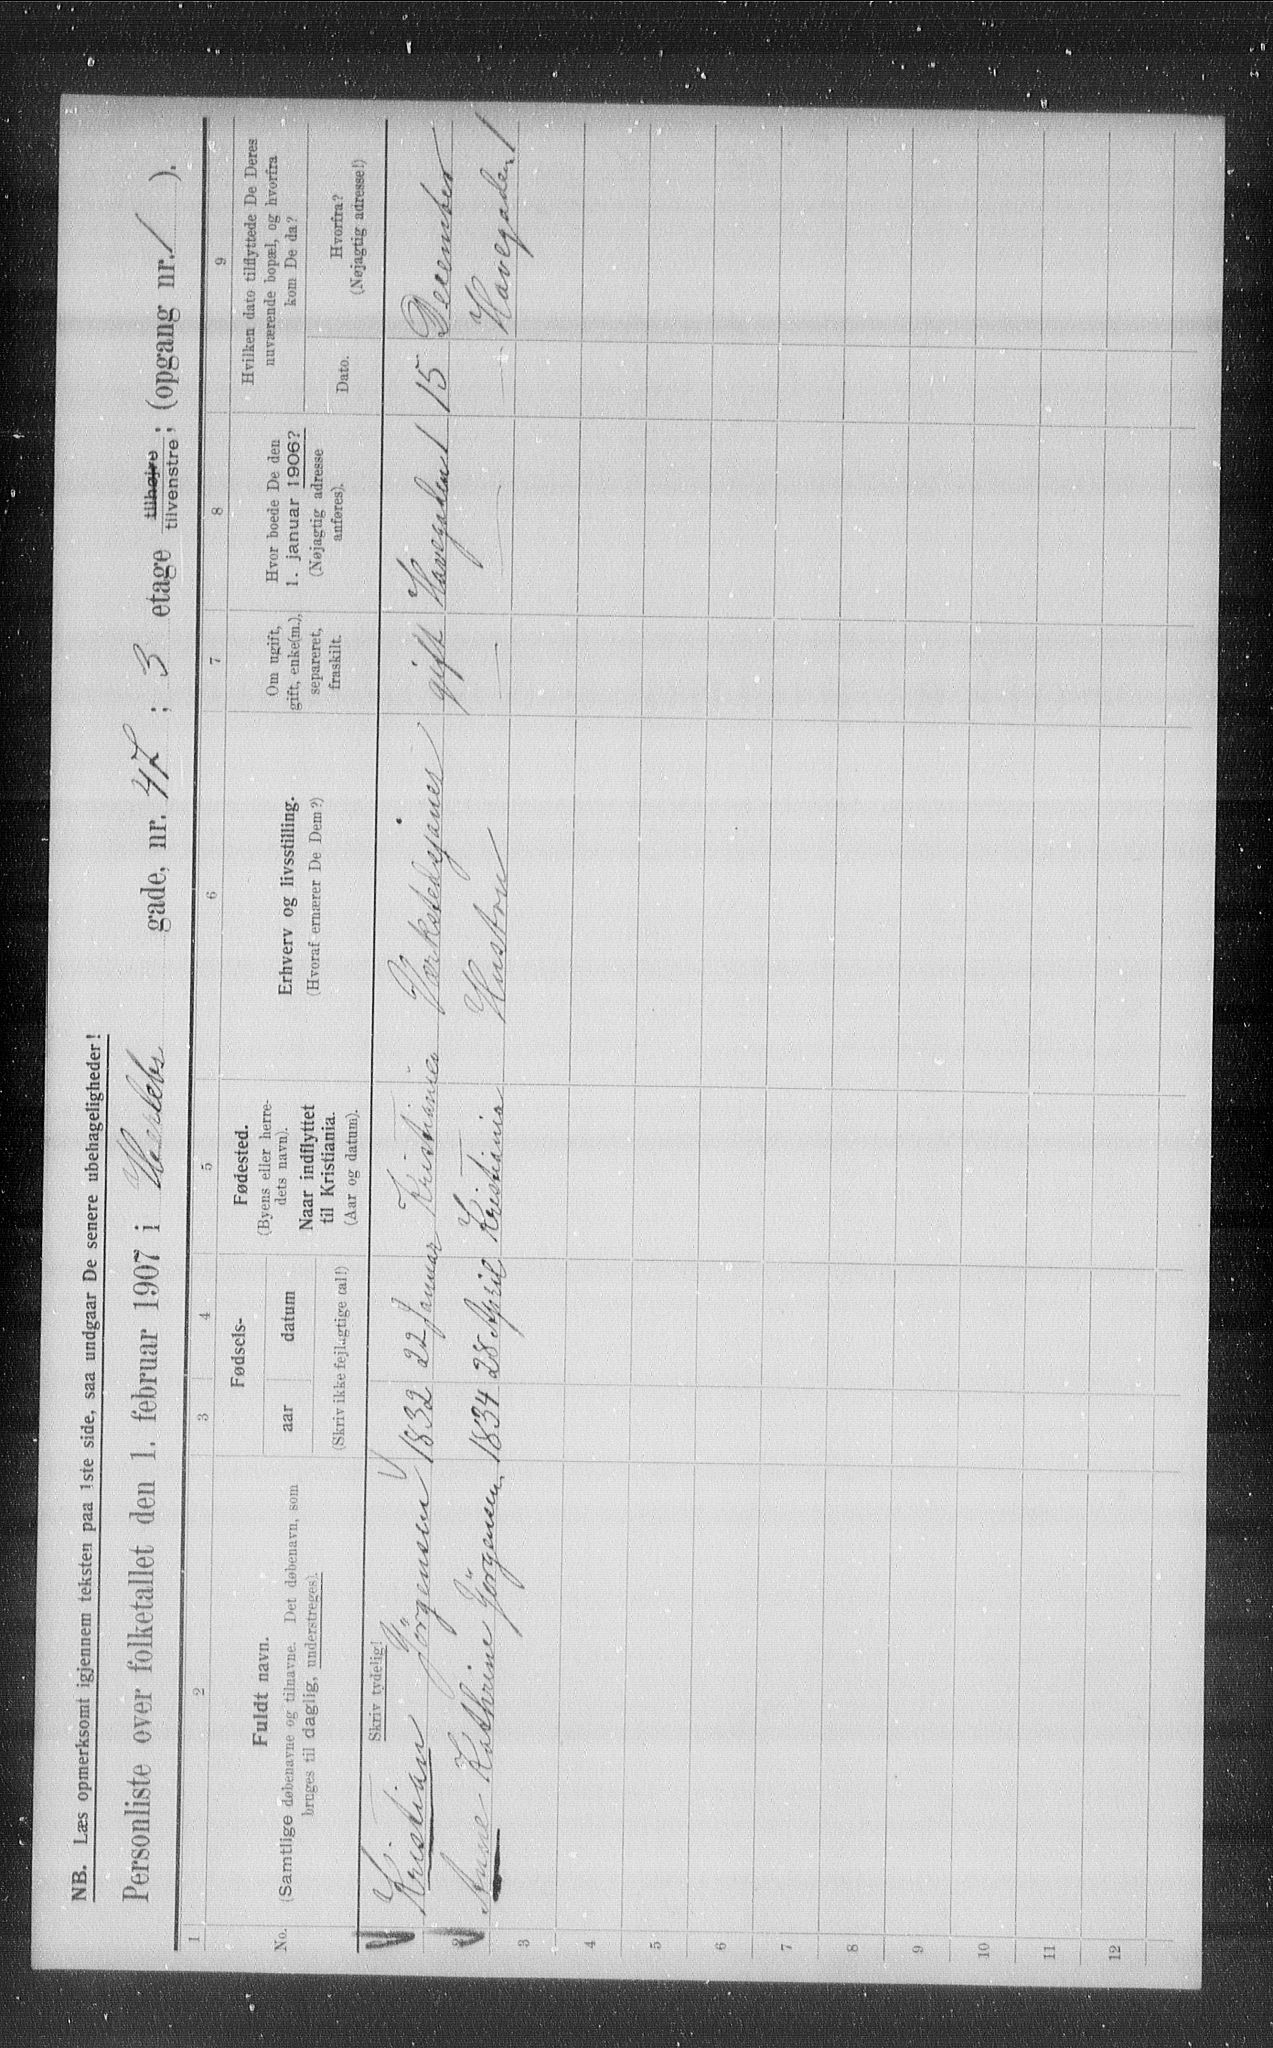 NB. Læs opmerksomt igjennem teksten paa 1ste side, saa undgaar De senere ubehageligheder!
Personliste over folketallet den 1. februar 1907 i Herslebs gade, nr. 47 ; 3 etage tilhøjre tilvenstre ; (opgang nr. 1 ).
1 2 3 4 5 6 7 8 9
No.
Fuldt navn.
(Samtlige døbenavne og tilnavne. Det døbenavn, som
bruges til daglig, understreges).
Skriv tydelig!
Fødsels-
aar datum
(Skriv ikke fejlagtige tal!)
Fødested.
(Byens eller herre-
dets navn).
Naar indflyttet
til Kristiania.
(Aar og datum).
Erhverv og livsstilling.
(Hvoraf ernærer De Dem?)
Om ugift,
gift, enke(m.),
separeret,
fraskilt.
Hvor boede De den
1. januar 1906?
(Nøjagtig adresse
anføres).
Hvilken dato tilflyttede De Deres
nuværende bopæl, og hvorfra
kom De da?
Dato.
Hvorfra?
(Nøjagtig adresse!)
Kristian Jörgensen 1832 22 Januar Kristiania gift Havegaden 1 15 December
2 Anne Kathrine Jörgensen 1834 28 April Kristiania Hustru — — — Havegaden 1
3
4
5
6
7
8
9
10
11
12